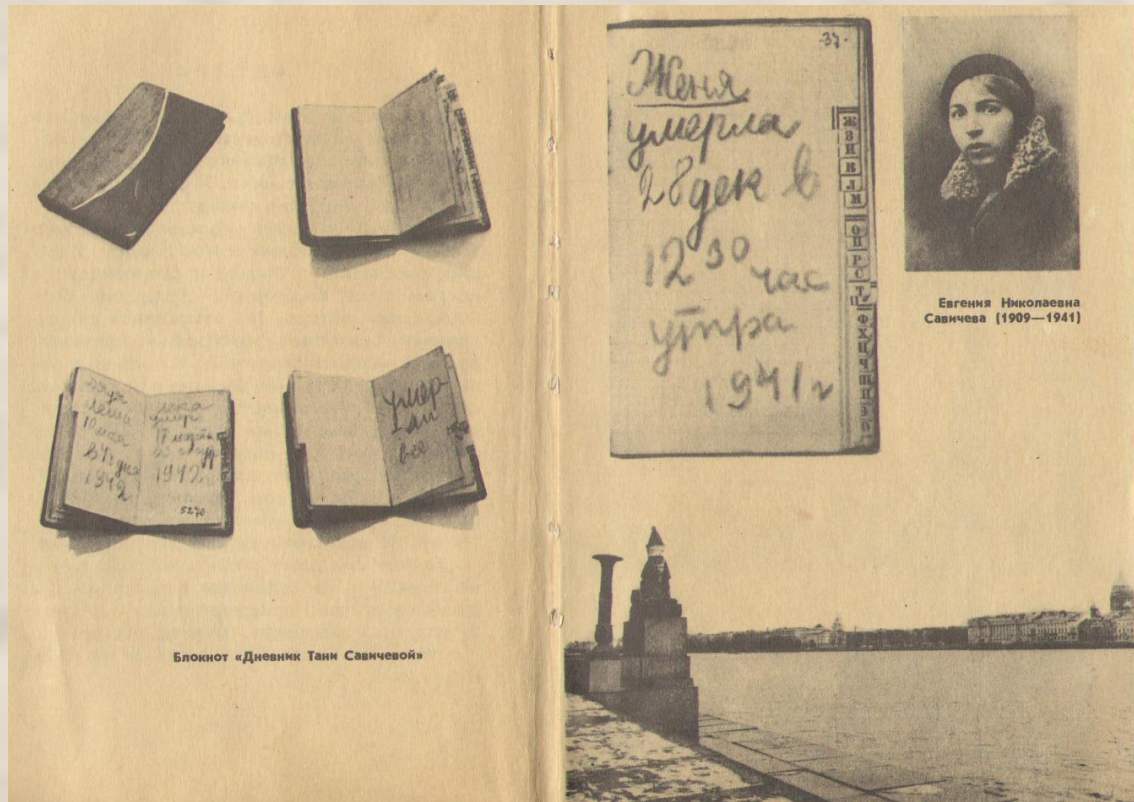 дядя
Леша
10 мая
в 4 ч дня
1942
Лека
умер
17 марта
1942
5270
умер
ли
все
Блокнот «Дневник Тани Савичевой»
-37-
Женя
умерла
28 дек в
12 30 час
утра
1941 г
Ж
З
И
К
Л
М
О
П
Р
С
Т
Ф
Х
Ц
Ч
Евгения Николаевна
Савичева (1909—1941)